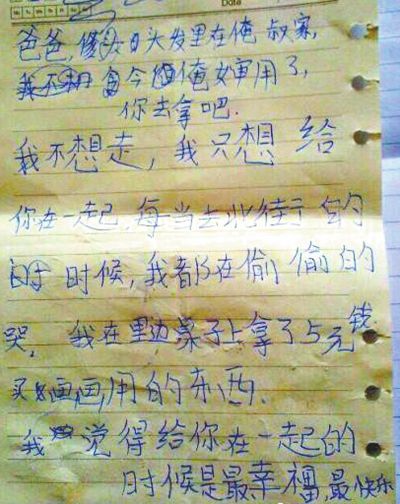 Date
爸爸,馒头日头发里在俺叔家,
今俺婶用了,
你去拿吧.
我不想走,我只想给
你在一起,每当去北街的
时候,我都在偷偷的
哭,我在里边桌子上拿了5元钱
买画画用的东西.
我觉得给你在一起的
时候是最幸福,最快乐